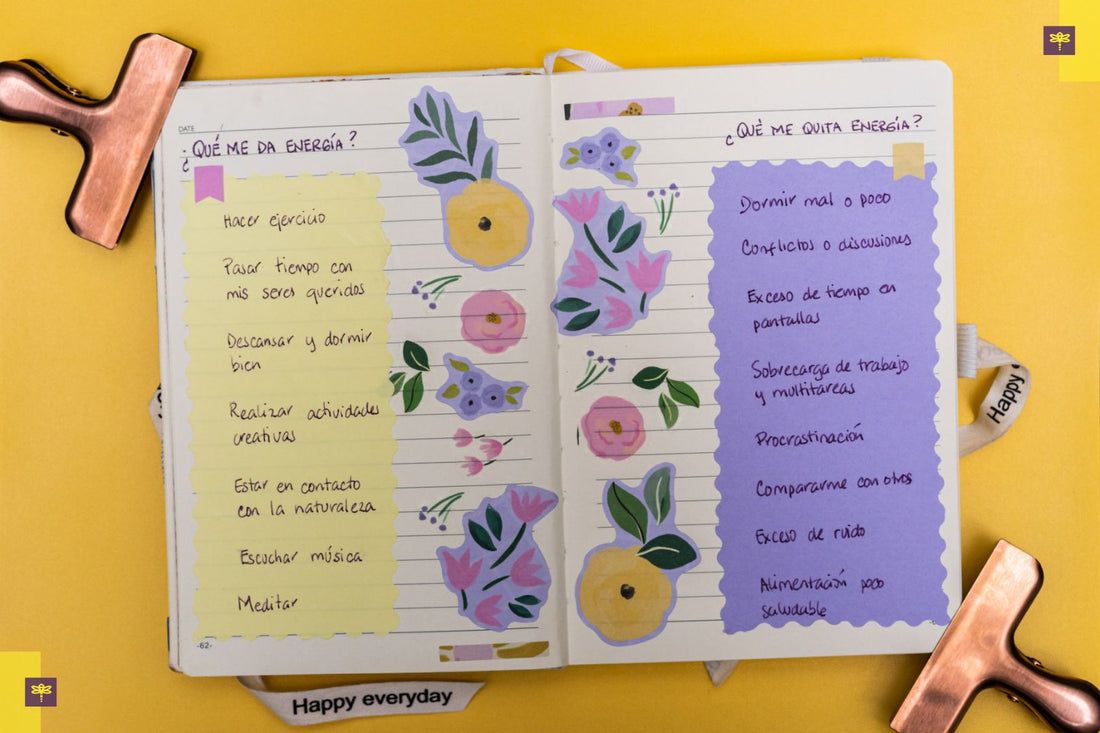 DATE
¿QUÉ ME DA ENERGÍA?
Hacer ejercicio
Pasar tiempo con
mis seres queridos
Descansar y dormir
bien
Realizar actividades
creativas
Estar en contacto
con la naturaleza
Escuchar música
Meditar
-62-
¿QUÉ ME QUITA ENERGÍA?
Dormir mal o poco
Conflictos o discusiones
Exceso de tiempo en
pantallas
Sobrecarga de trabajo
y multitareas
Procrastinación
Compararme con otros
Exceso de ruido
Alimentación poco
saludable
Happy
Happy everyday